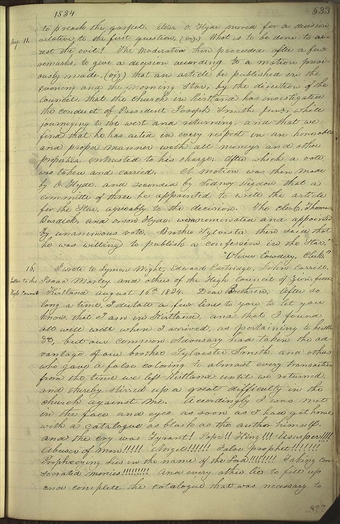 1834 533
to preach the gospel. Elder O. Hyde moved for a decision
Aug. 11. relative to the first question, (viz) What is to be done to ar-
rest the evil? The moderator then proceeded after a few
remarks to give a decision according to a motion previ-
ously made, (viz) that an article be published in the
evening and the morning Star, by the direction of the
councils that the Church in Kirtland has investigated
the conduct of President Joseph Smith jun. while
journeying to the west and returning, and that we
find that he has acted in every respect in an honorable
and proper manner with all moneys and other
properties entrusted to his charge. After which a vote
was taken and carried. A motion was then made
by O. Hyde and seconded by Sidney Rigdon that a
committee of three be appointed to write the article
for the Star, agreeably to the decision. The clerk, Thomas
Burdick, and Orson Hyde were nominated and appointed
by unanimous vote. Brother Sylvester then said that
he was willing to publish a confession in the Star."
"Oliver Cowdery, Clerk"
16. I wrote to Lyman Wight, Edward Partridge, John Corrill,
Letter to the Isaac Morley and others of the High Council of Zion from
High Council Kirtland August 16th 1834. Dear Brethren, After so
long a time I dictate a few lines to you to let you
know that I am in Kirtland, and that I found
all well when I arrived, as pertaining to health
&c, but our common adversary had taken the ad-
vantage of our brother Sylvester Smith and others
who gave a false coloring to almost every transaction
from the time we left Kirtland until we returned,
and thereby stirred up a great difficulty in the
church against me. Accordingly I was met
in the face and eyes as soon as I had got home
with a catalogue as black as the author himself
and the cry was Tyrant! Pope!! King!!! Usurper!!!!
Abuser of Men!!!!! Angel!!!!!! False Prophet!!!!!!!
Prophecying Lies in the name of the Lord!!!!!!!! Taking con-
secrated monies!!!!!!!!! And every other lie to fill up
and complete the catalogue that was necessary to